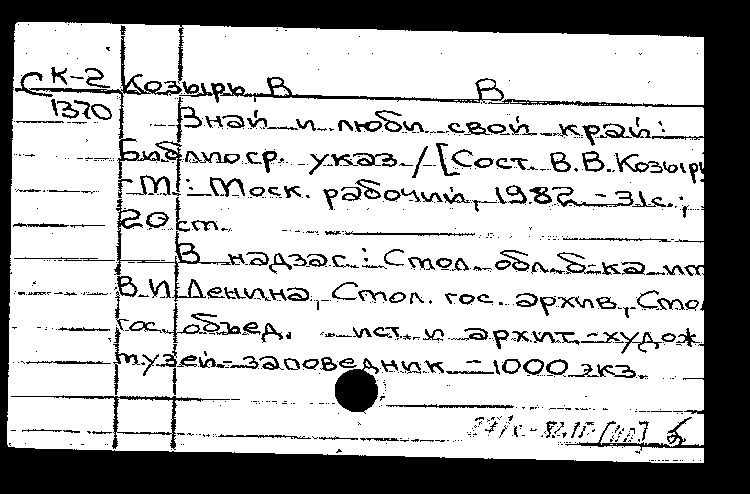 С К-2 Козырь, В В
1370 Знай и люби свой край:
Библиогр. указ. / [Сост. В.В. Козырь
- М.: Моск. рабочий, 1982. - 31с.;
20 ст.
В надзаг.: Смол. обл. б-ка им
В.И Ленина, Смол. гос. архив, Смо
гос. объед. ист. и архит.-худож
музей-заповедник - 1000 экз.